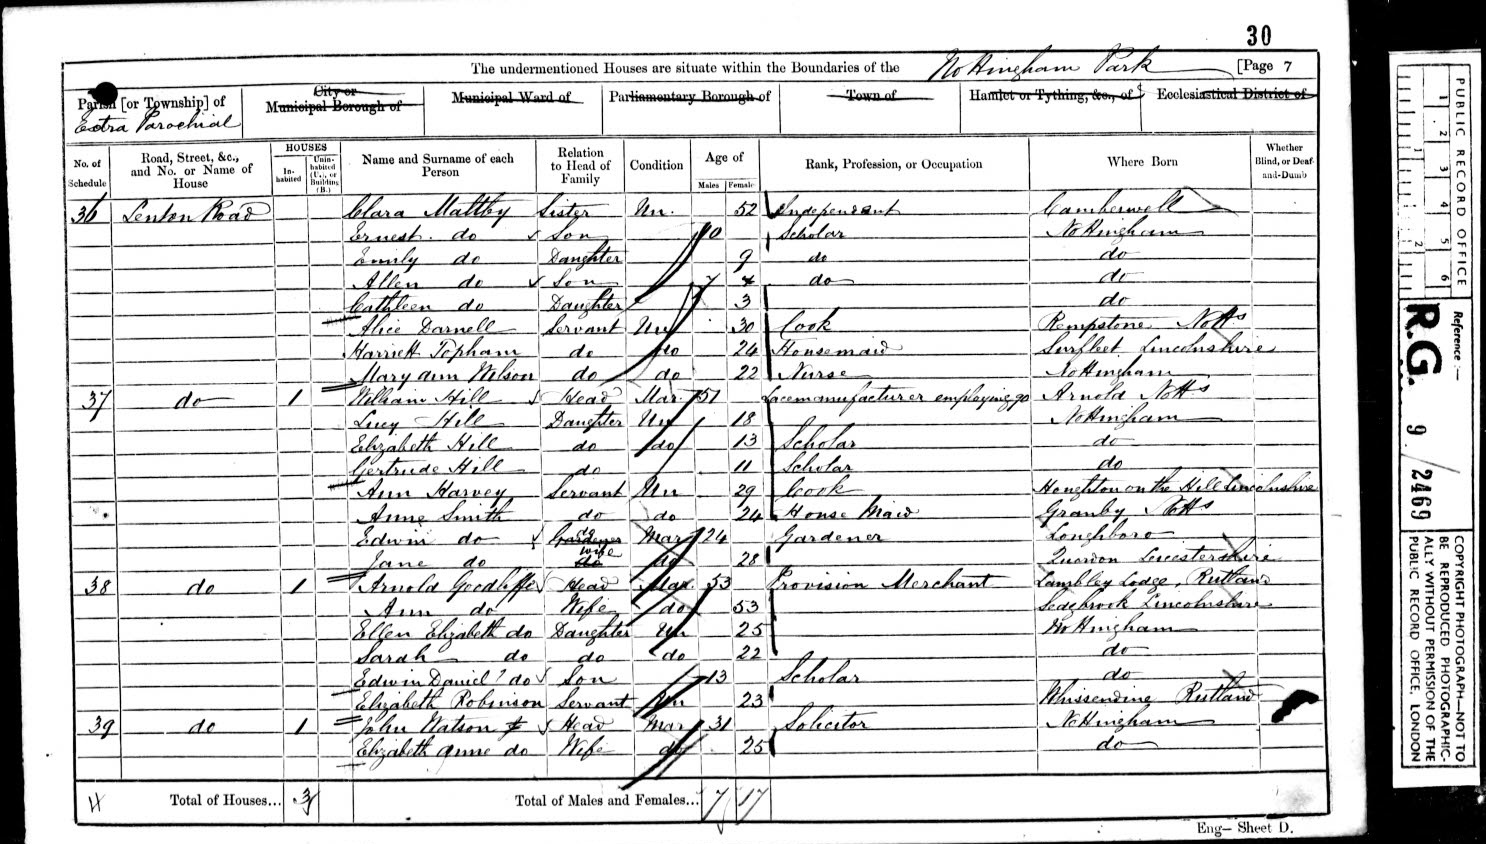 30
The undermentioned Houses are situate within the Boundaries of the Nottingham Park [Page 7
Parish [or Township] of
Extra Parochial
City or
Municipal Borough of
Municipal Ward of
Parliamentary Borough of
Town of
Hamlet or Tything, &c., of
Ecclesiastical District of
No. of Schedule
Road, Street, &c., and No. or Name of House
HOUSES
Inhabited
Uninhabited (U.), or Building (B.)
Name and Surname of each Person
Relation to Head of Family
Condition
Age of
Males
Females
Rank, Profession, or Occupation
Where Born
Whether Blind, or Deaf-and-Dumb
36 Lenton Road Clara Maltby Sister Un. 52 Independant Camberwell
Ernest do Son 10 Scholar Nottingham
Emily do Daughter 9 do do
Allen do Son 7 do do
Cathleen do Daughter 3 do
Alice Darnell Servant Un 30 Cook Rempstone Notts
Harriett Topham do do 24 Housemaid Surfleet Lincolnshire
Mary Ann Wilson do do 22 Nurse Nottingham
37 do 1 William Hill Head Mar 51 Lacemanufacturer employing 90 Arnold Notts
Lucy Hill Daughter Un 18 Nottingham
Elizabeth Hill do do 13 Scholar do
Gertrude Hill do 11 Scholar do
Ann Harvey Servant Un 29 Cook Houghton on the Hill Lincolnshire
Anne Smith do do 24 House Maid Granby Notts
Edwin do Gardener do Mar 24 Gardener Longhboro
Jane do do wife do 28 Quordon Leicestershire
38 do 1 Arnold Goodliffe Head Mar 53 Provision Merchant Lambley Lodge, Rutland
Ann do Wife do 53 Sedgbrook Lincolnshire
Ellen Elizabeth do Daughter Un 25 Nottingham
Sarah do do do 22 do
Edwin Daniel do Son 13 Scholar do
Elizabeth Robinson Servant Un 23 Whissendine Rutland
39 do 1 John Watson Head Mar 31 Solicitor Nottingham
Elizabeth Anne do Wife do 25 do
4 Total of Houses... 3 Total of Males and Females... 7 17
Eng— Sheet D.
PUBLIC RECORD OFFICE
1 2 3 4 5 6
1 2
Reference:—
R.G. 9/2469
COPYRIGHT PHOTOGRAPH—NOT TO BE REPRODUCED PHOTOGRAPHICALLY WITHOUT PERMISSION OF THE PUBLIC RECORD OFFICE, LONDON